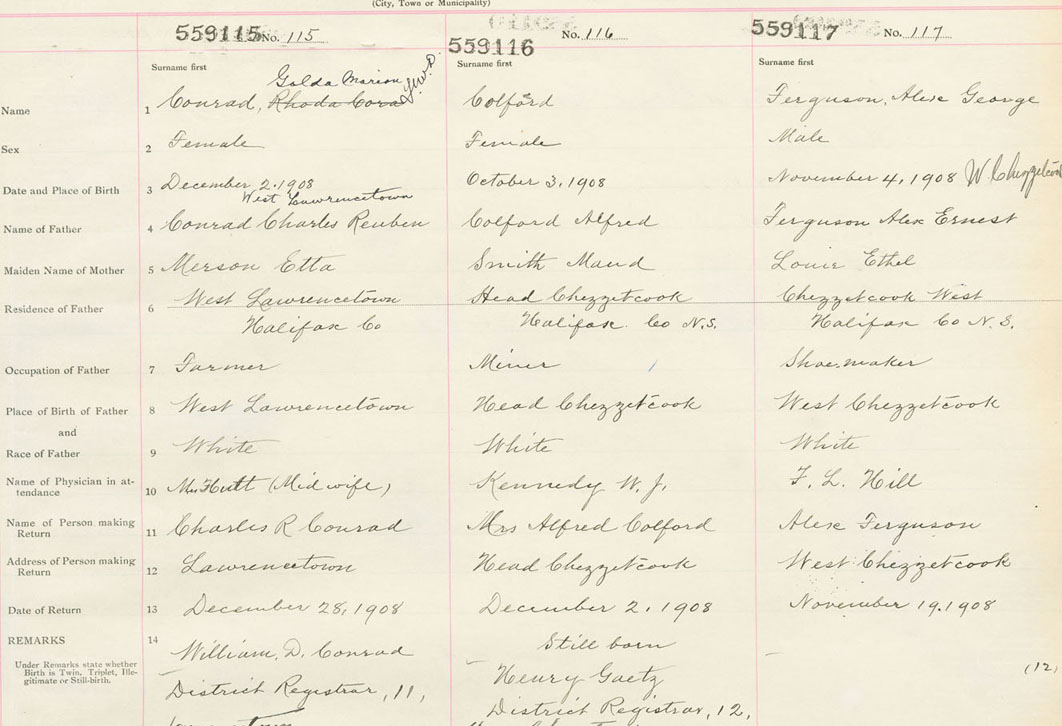 (City, Town or Municipality)
559115 No. 115
559116 No. 116
559117 No. 117
Surname first
Surname first
Surname first
Golda Marion
Name 1 Conrad, Rhoda Cora Colford Ferguson, Alex George
Sex 2 Female Female Male
Date and Place of Birth 3 December 2. 1908 October 3, 1908 November 4, 1908 W. Chezzetcook
West Lawrencetown
Name of Father 4 Conrad Charles Reuben Colford Alfred Ferguson Alex Ernest
Maiden Name of Mother 5 Merson Etta Smith Maud Ethel
Residence of Father 6 West Lawrencetown Head Chezzetcook Chezzetcook West
Halifax Co Halifax Co N.S. Halifax Co N.S.
Occupation of Father 7 Farmer Miner Shoemaker
Place of Birth of Father 8 West Lawrencetown Head Chezzetcook West Chezzetcook
and
Race of Father 9 White White White
Name of Physician in at-
tendance 10 Mrs Hutt (Midwife) Kennedy W. J. F. L. Hill
Name of Person making
Return 11 Charles R Conrad Mrs Alfred Colford Alex Ferguson
Address of Person making
Return 12 Lawrencetown Head Chezzetcook West Chezzetcook
Date of Return 13 December 28, 1908 December 2. 1908 November 19. 1908
REMARKS 14 William. D. Conrad Still born
Under Remarks state whether
Birth is Twin, Triplet, Ille-
gitimate or Still-birth.
District Registrar, 11,
Henry Gaetz
District Registrar, 12,
(12)